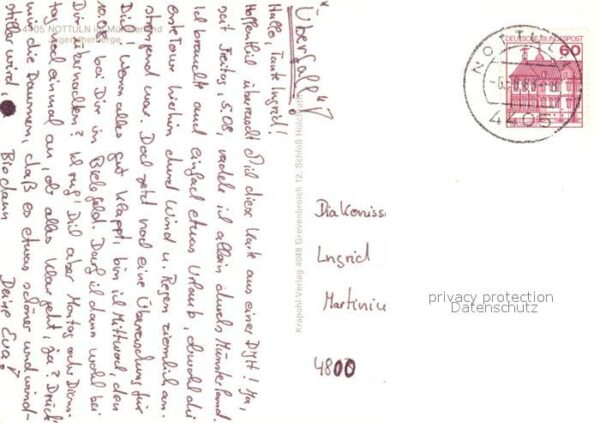 "Überfall"!
Hallo, Tante Ingrid!
Hoffentlich überrascht Dich diese Karte aus einer DJH! Ja,
seit Freitag, 5.08, radele ich allein durchs Münsterland.
Ich brauchte auch einfach etwas Urlaub, obwohl die
erste Tour hierhin durch Wind u. Regen ziemlich an-
strengend war. Doch jetzt noch eine Überraschung für
Dich! Wenn alles gut klappt, bin ich Mittwoch, den
10.08, bei Dir in Bielefeld. Darf ich dann wohl bei
Dir übernachten? Ich ruf' Dich aber Montag oder Diens-
tag noch einmal an, ob alles klar geht, ja? Drück
mir die Daumen, daß es etwas schöner und wind-
stiller wird. Bis dann Deine Eva!
4405 NOTTULN im Münsterland
Jugendherberge
Krapohl-Verlag 4048 Grevenbroich 12, Schloß Hülchrath
DEUTSCHE BUNDESPOST
60
NOTTULN
4405
Diakonisse
Ingrid
Martini
4800
privacy protection
Datenschutz